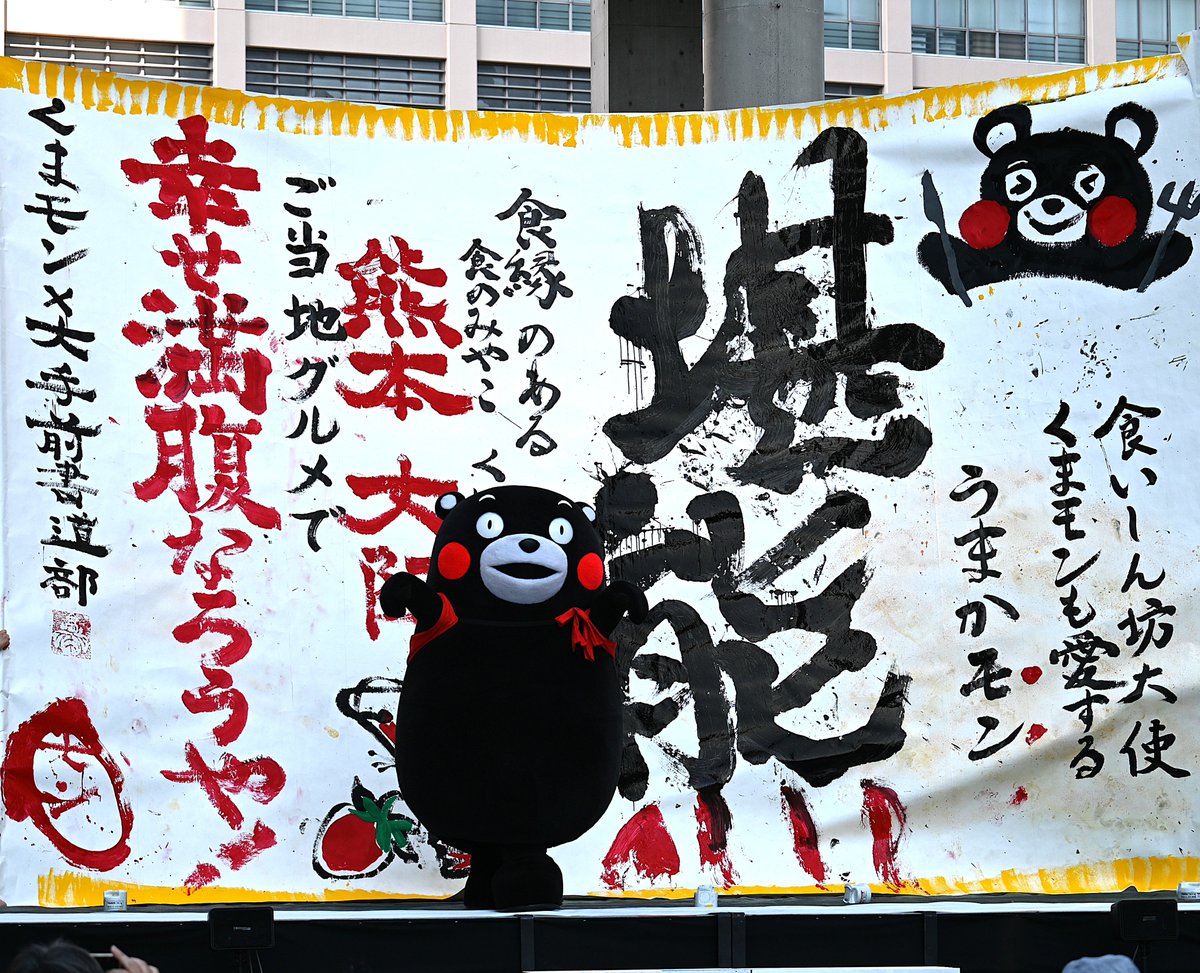 食いしん坊大使
くまモンも愛する
うまかモン
堪能
食縁のある
食のみやこ く
熊本 大阪
ご当地グルメで
幸せ満腹なろうヤン
くまモン×大手前書道部